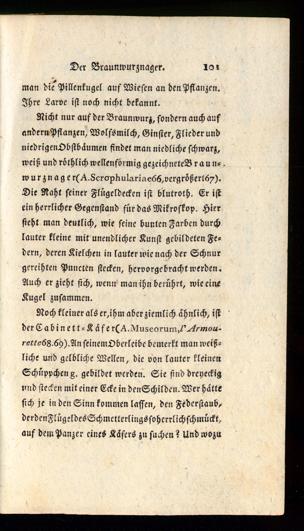 Der Braunwurznager. 101
man die Pillenkugel auf Wiesen an den Pflanzen.
Ihre Larve ist noch nicht bekannt.
Nicht nur auf der Braunwurz, sondern auch auf
andern Pflanzen, Wolfsmilch, Ginster, Flieder und
niedrigen Obstbäumen findet man niedliche schwarz,
weiß und röthlich wellenförmig gezeichnete Braun-
wurznager (A. Scrophulariae 66, vergrößert 67).
Die Naht seiner Flügeldecken ist blutroth. Er ist
ein herrlicher Gegenstand für das Mikroskop. Hier
sieht man deutlich, wie seine bunten Farben durch
lauter kleine mit unendlicher Kunst gebildeten Fe-
dern, deren Kielchen in lauter wie nach der Schnur
gereihten Puncten stecken, hervorgebracht werden.
Auch er zieht sich, wenn man ihn berührt, wie eine
Kugel zusammen.
Noch kleiner als er, ihm aber ziemlich ähnlich, ist
der Cabinett-Käfer (A. Museorum, l'Amou-
rette 68. 69). An seinem Oberleibe bemerkt man weiß-
liche und gelbliche Wellen, die von lauter kleinen
Schüppchen g. gebildet werden. Sie sind dreyeckig
und stecken mit einer Ecke in den Schilden. Wer hätte
sich je in den Sinn kommen lassen, den Federstaub,
der den Flügel des Schmetterlings so herrlich schmückt,
auf dem Panzer eines Käfers zu suchen? Und wozu